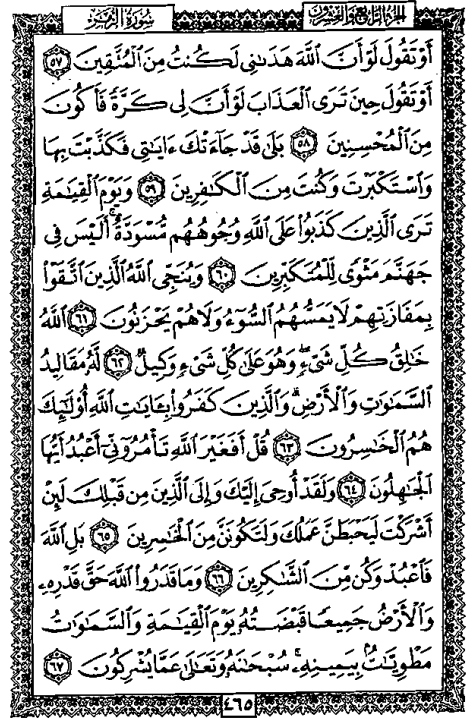 الجزء الرابع والعشرون سُورَةُ الزُّمَرِ
أَوْ تَقُولَ لَوْ أَنَّ ٱللَّهَ هَدَىٰنِى لَكُنتُ مِنَ ٱلْمُتَّقِينَ ٥٧
أَوْ تَقُولَ حِينَ تَرَى ٱلْعَذَابَ لَوْ أَنَّ لِى كَرَّةً فَأَكُونَ
مِنَ ٱلْمُحْسِنِينَ ٥٨ بَلَىٰ قَدْ جَآءَتْكَ ءَايَٰتِى فَكَذَّبْتَ بِهَا
وَٱسْتَكْبَرْتَ وَكُنتَ مِنَ ٱلْكَٰفِرِينَ ٥٩ وَيَوْمَ ٱلْقِيَٰمَةِ
تَرَى ٱلَّذِينَ كَذَبُوا۟ عَلَى ٱللَّهِ وُجُوهُهُم مُّسْوَدَّةٌ ۚ أَلَيْسَ فِى
جَهَنَّمَ مَثْوًى لِّلْمُتَكَبِّرِينَ ٦٠ وَيُنَجِّى ٱللَّهُ ٱلَّذِينَ ٱتَّقَوْا۟
بِمَفَازَتِهِمْ لَا يَمَسُّهُمُ ٱلسُّوٓءُ وَلَا هُمْ يَحْزَنُونَ ٦١ ٱللَّهُ
خَٰلِقُ كُلِّ شَىْءٍ ۖ وَهُوَ عَلَىٰ كُلِّ شَىْءٍ وَكِيلٌ ٦٢ لَّهُۥ مَقَالِيدُ
ٱلسَّمَٰوَٰتِ وَٱلْأَرْضِ ۗ وَٱلَّذِينَ كَفَرُوا۟ بِـَٔايَٰتِ ٱللَّهِ أُو۟لَٰٓئِكَ
هُمُ ٱلْخَٰسِرُونَ ٦٣ قُلْ أَفَغَيْرَ ٱللَّهِ تَأْمُرُوٓنِّىٓ أَعْبُدُ أَيُّهَا
ٱلْجَٰهِلُونَ ٦٤ وَلَقَدْ أُوحِىَ إِلَيْكَ وَإِلَى ٱلَّذِينَ مِن قَبْلِكَ لَئِنْ
أَشْرَكْتَ لَيَحْبَطَنَّ عَمَلُكَ وَلَتَكُونَنَّ مِنَ ٱلْخَٰسِرِينَ ٦٥ بَلِ ٱللَّهَ
فَٱعْبُدْ وَكُن مِّنَ ٱلشَّٰكِرِينَ ٦٦ وَمَا قَدَرُوا۟ ٱللَّهَ حَقَّ قَدْرِهِۦ
وَٱلْأَرْضُ جَمِيعًا قَبْضَتُهُۥ يَوْمَ ٱلْقِيَٰمَةِ وَٱلسَّمَٰوَٰتُ
مَطْوِيَّٰتٌۢ بِيَمِينِهِۦ ۚ سُبْحَٰنَهُۥ وَتَعَٰلَىٰ عَمَّا يُشْرِكُونَ ٦٧
٤٦٥